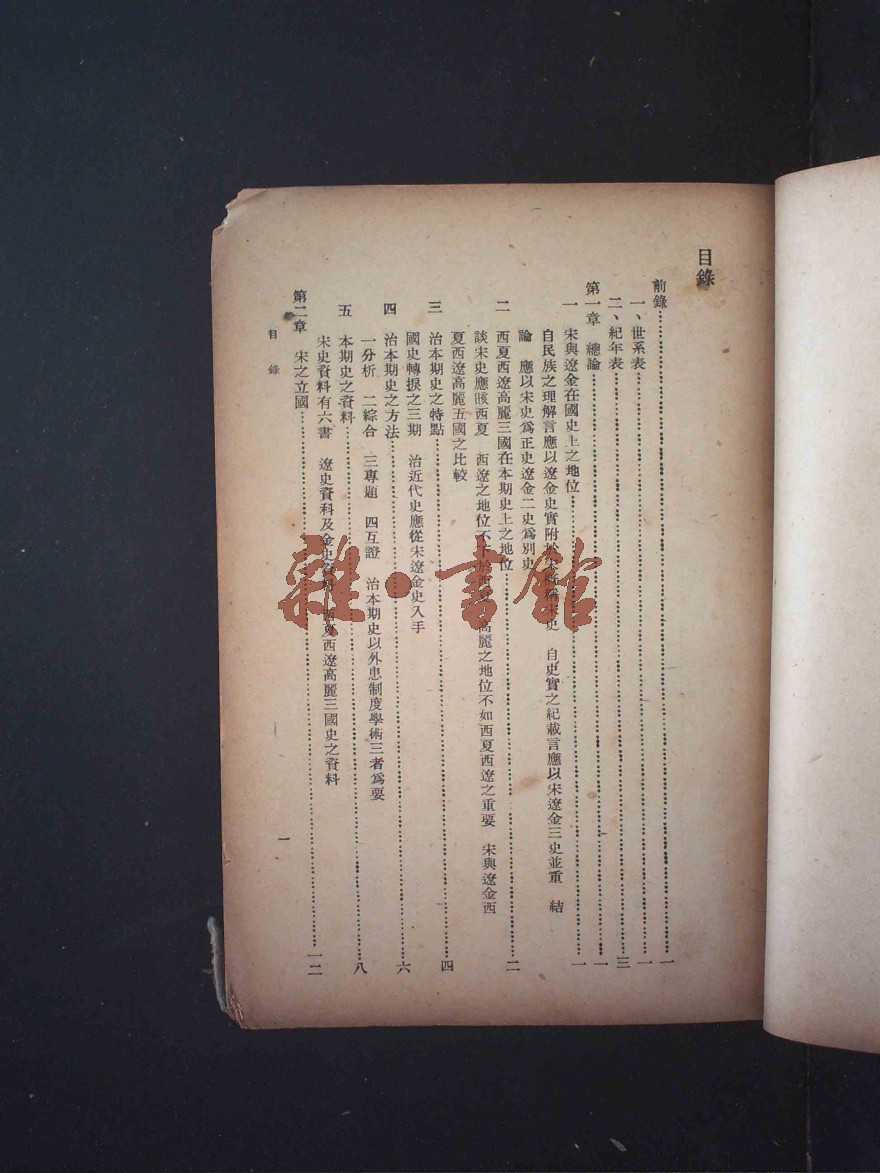 目錄
前錄……一
一、世系表……一
二、紀年表……三
第一章　總論……一
一　宋與遼金在國史上之地位……一
自民族之理解言應以遼金史實附於宋　稱宋史　自史實之紀載言應以宋遼金三史並重　結
論　應以宋史爲正史遼金二史爲別史
二　西夏西遼高麗三國在本期史上之地位……二
談宋史應賅西夏　西遼之地位不下於西夏　高麗之地位不如西夏西遼之重要　宋與遼金西
夏西遼高麗五國之比較
三　治本期史之特點……四
國史轉捩之三期　治近代史應從宋遼金史入手
四　治本期史之方法……六
一分析　二綜合　三專題　四互證　治本期史以外患制度學術三者爲要
五　本期史之資料……八
宋史資料有六書　遼史資科及金史資料　西夏西遼高麗三國史之資料
第二章　宋之立國……一二
目錄
一
雜·書館